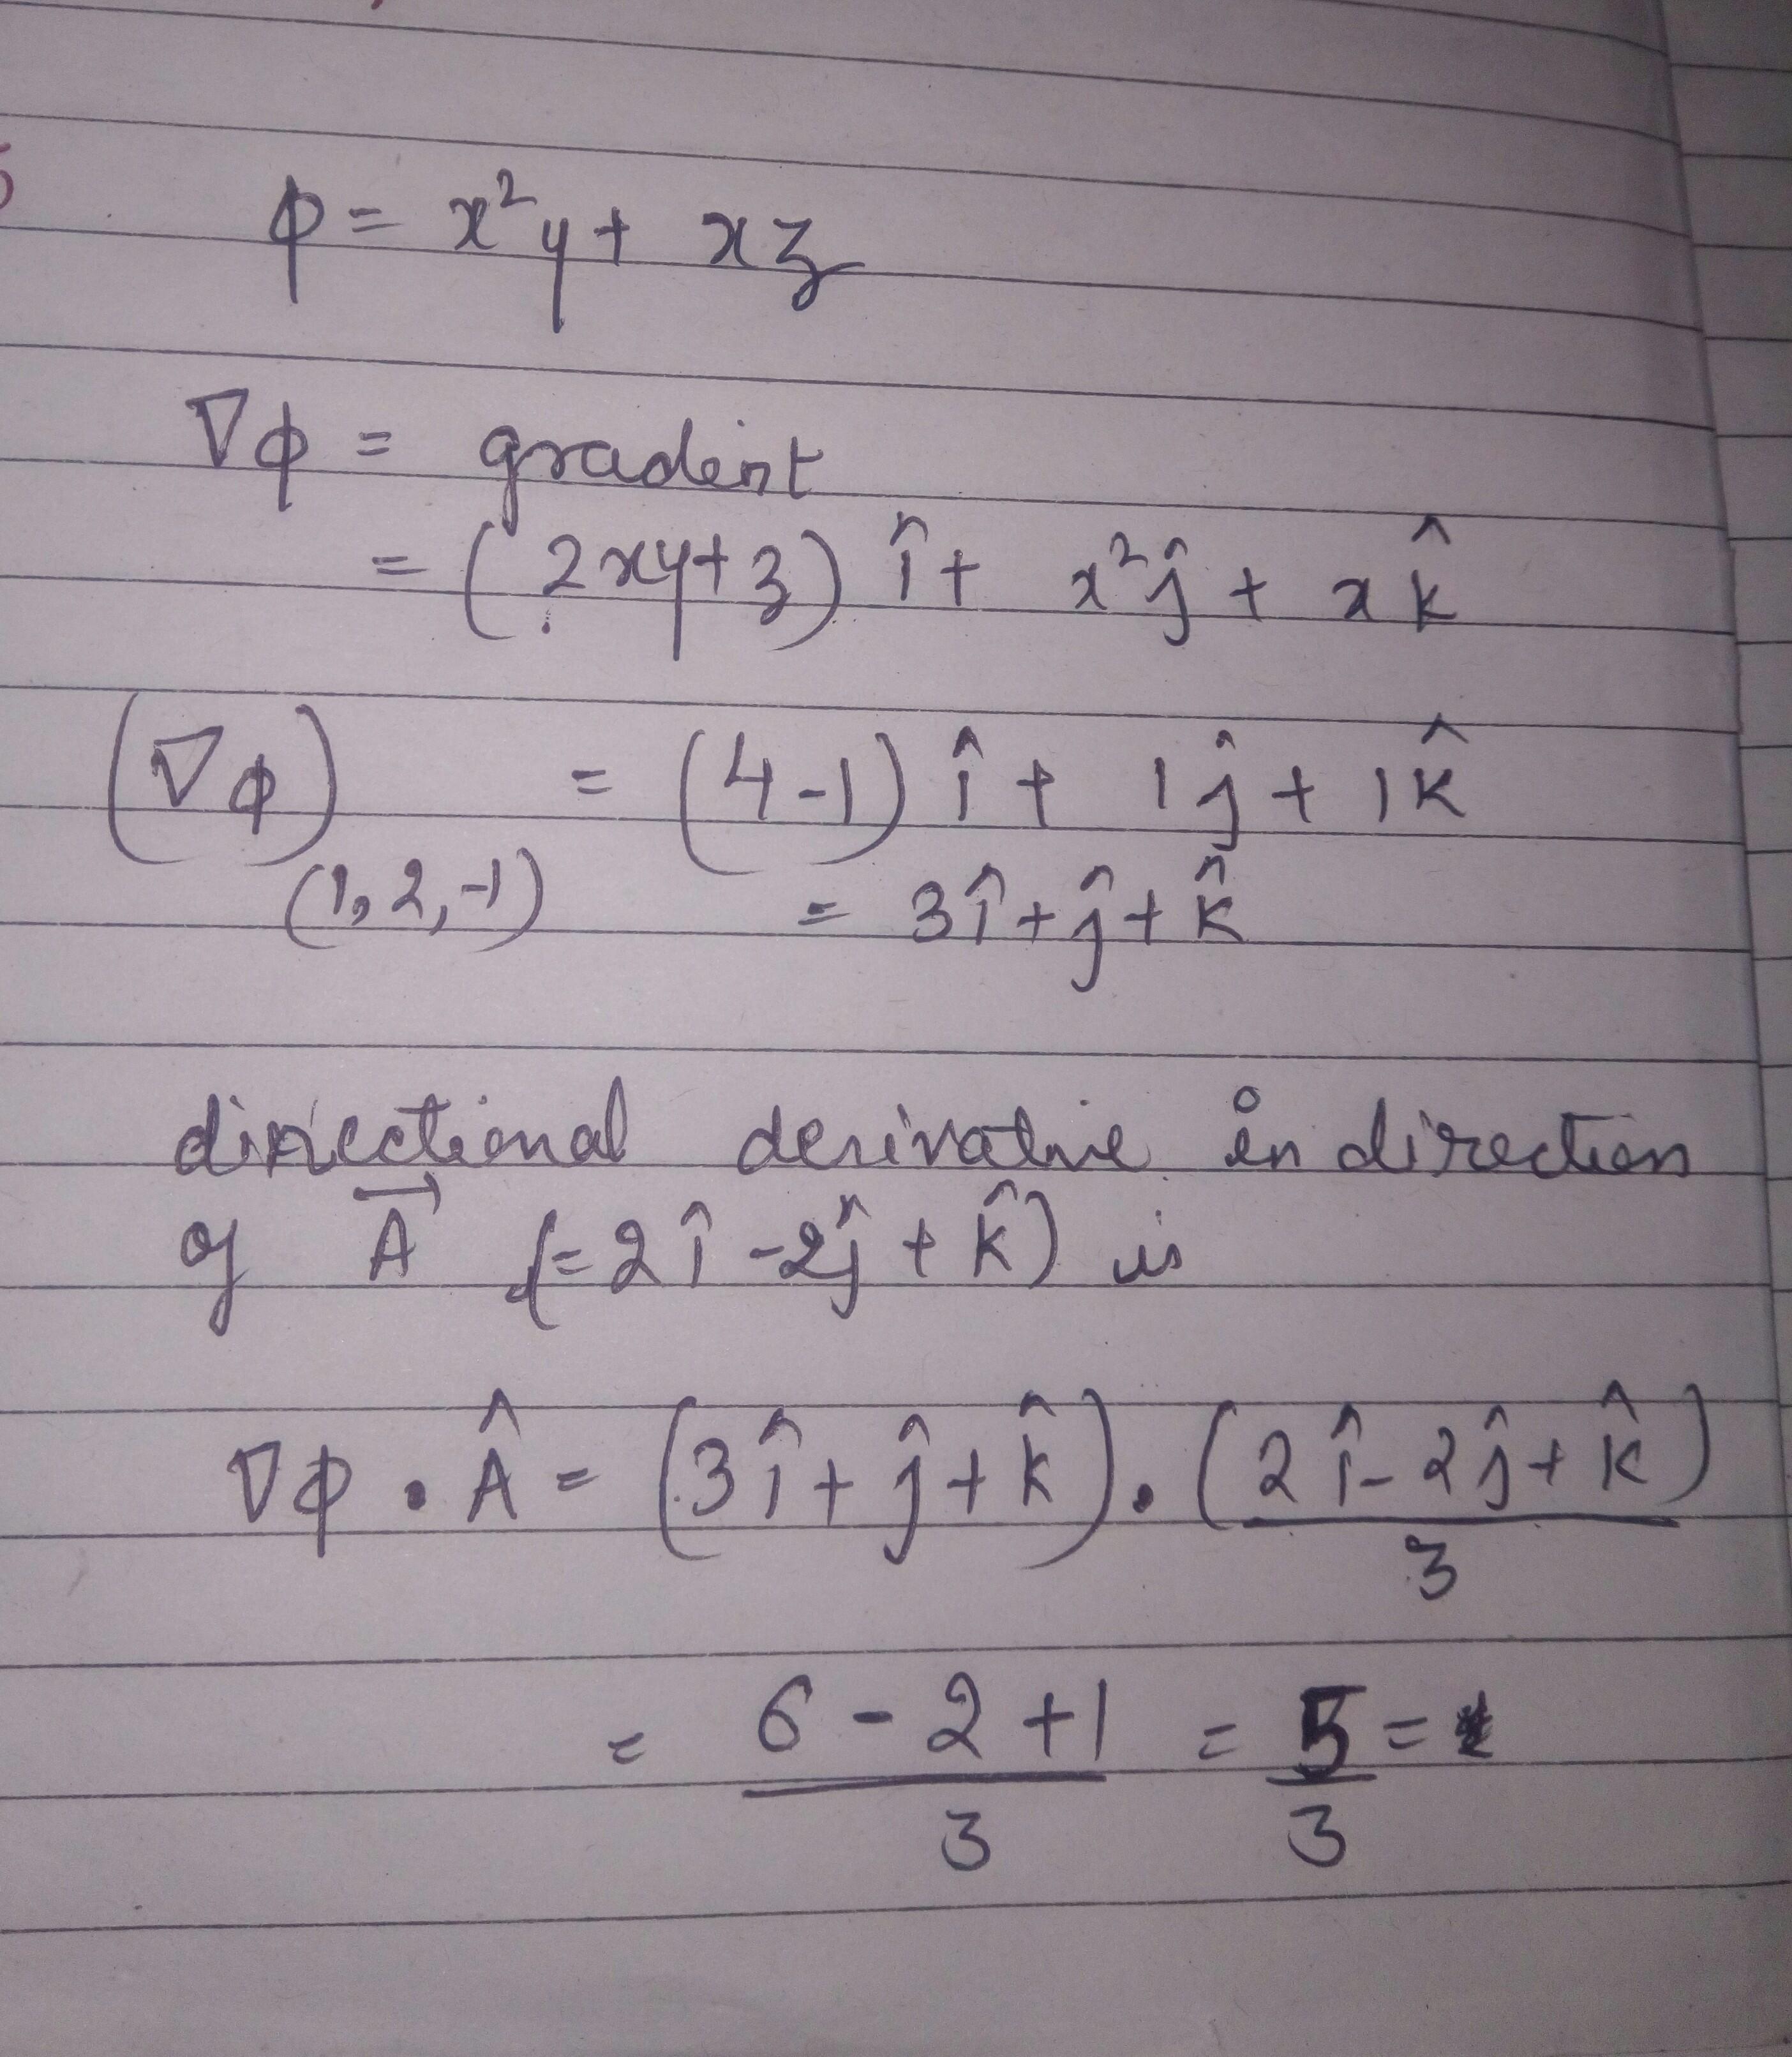 5
ϕ = x²y + xz
∇ϕ = gradient
= (2xy+z) î + x²ĵ + x k̂
(∇ϕ)(1,2,-1) = (4-1) î + 1ĵ + 1k̂
= 3î + ĵ + k̂
directional derivative in direction
of A⃗ (= 2î - 2ĵ + k̂) is
∇ϕ . Â = (3î + ĵ + k̂) . (2î - 2ĵ + k̂)/3
= (6 - 2 + 1)/3 = 5/3 =